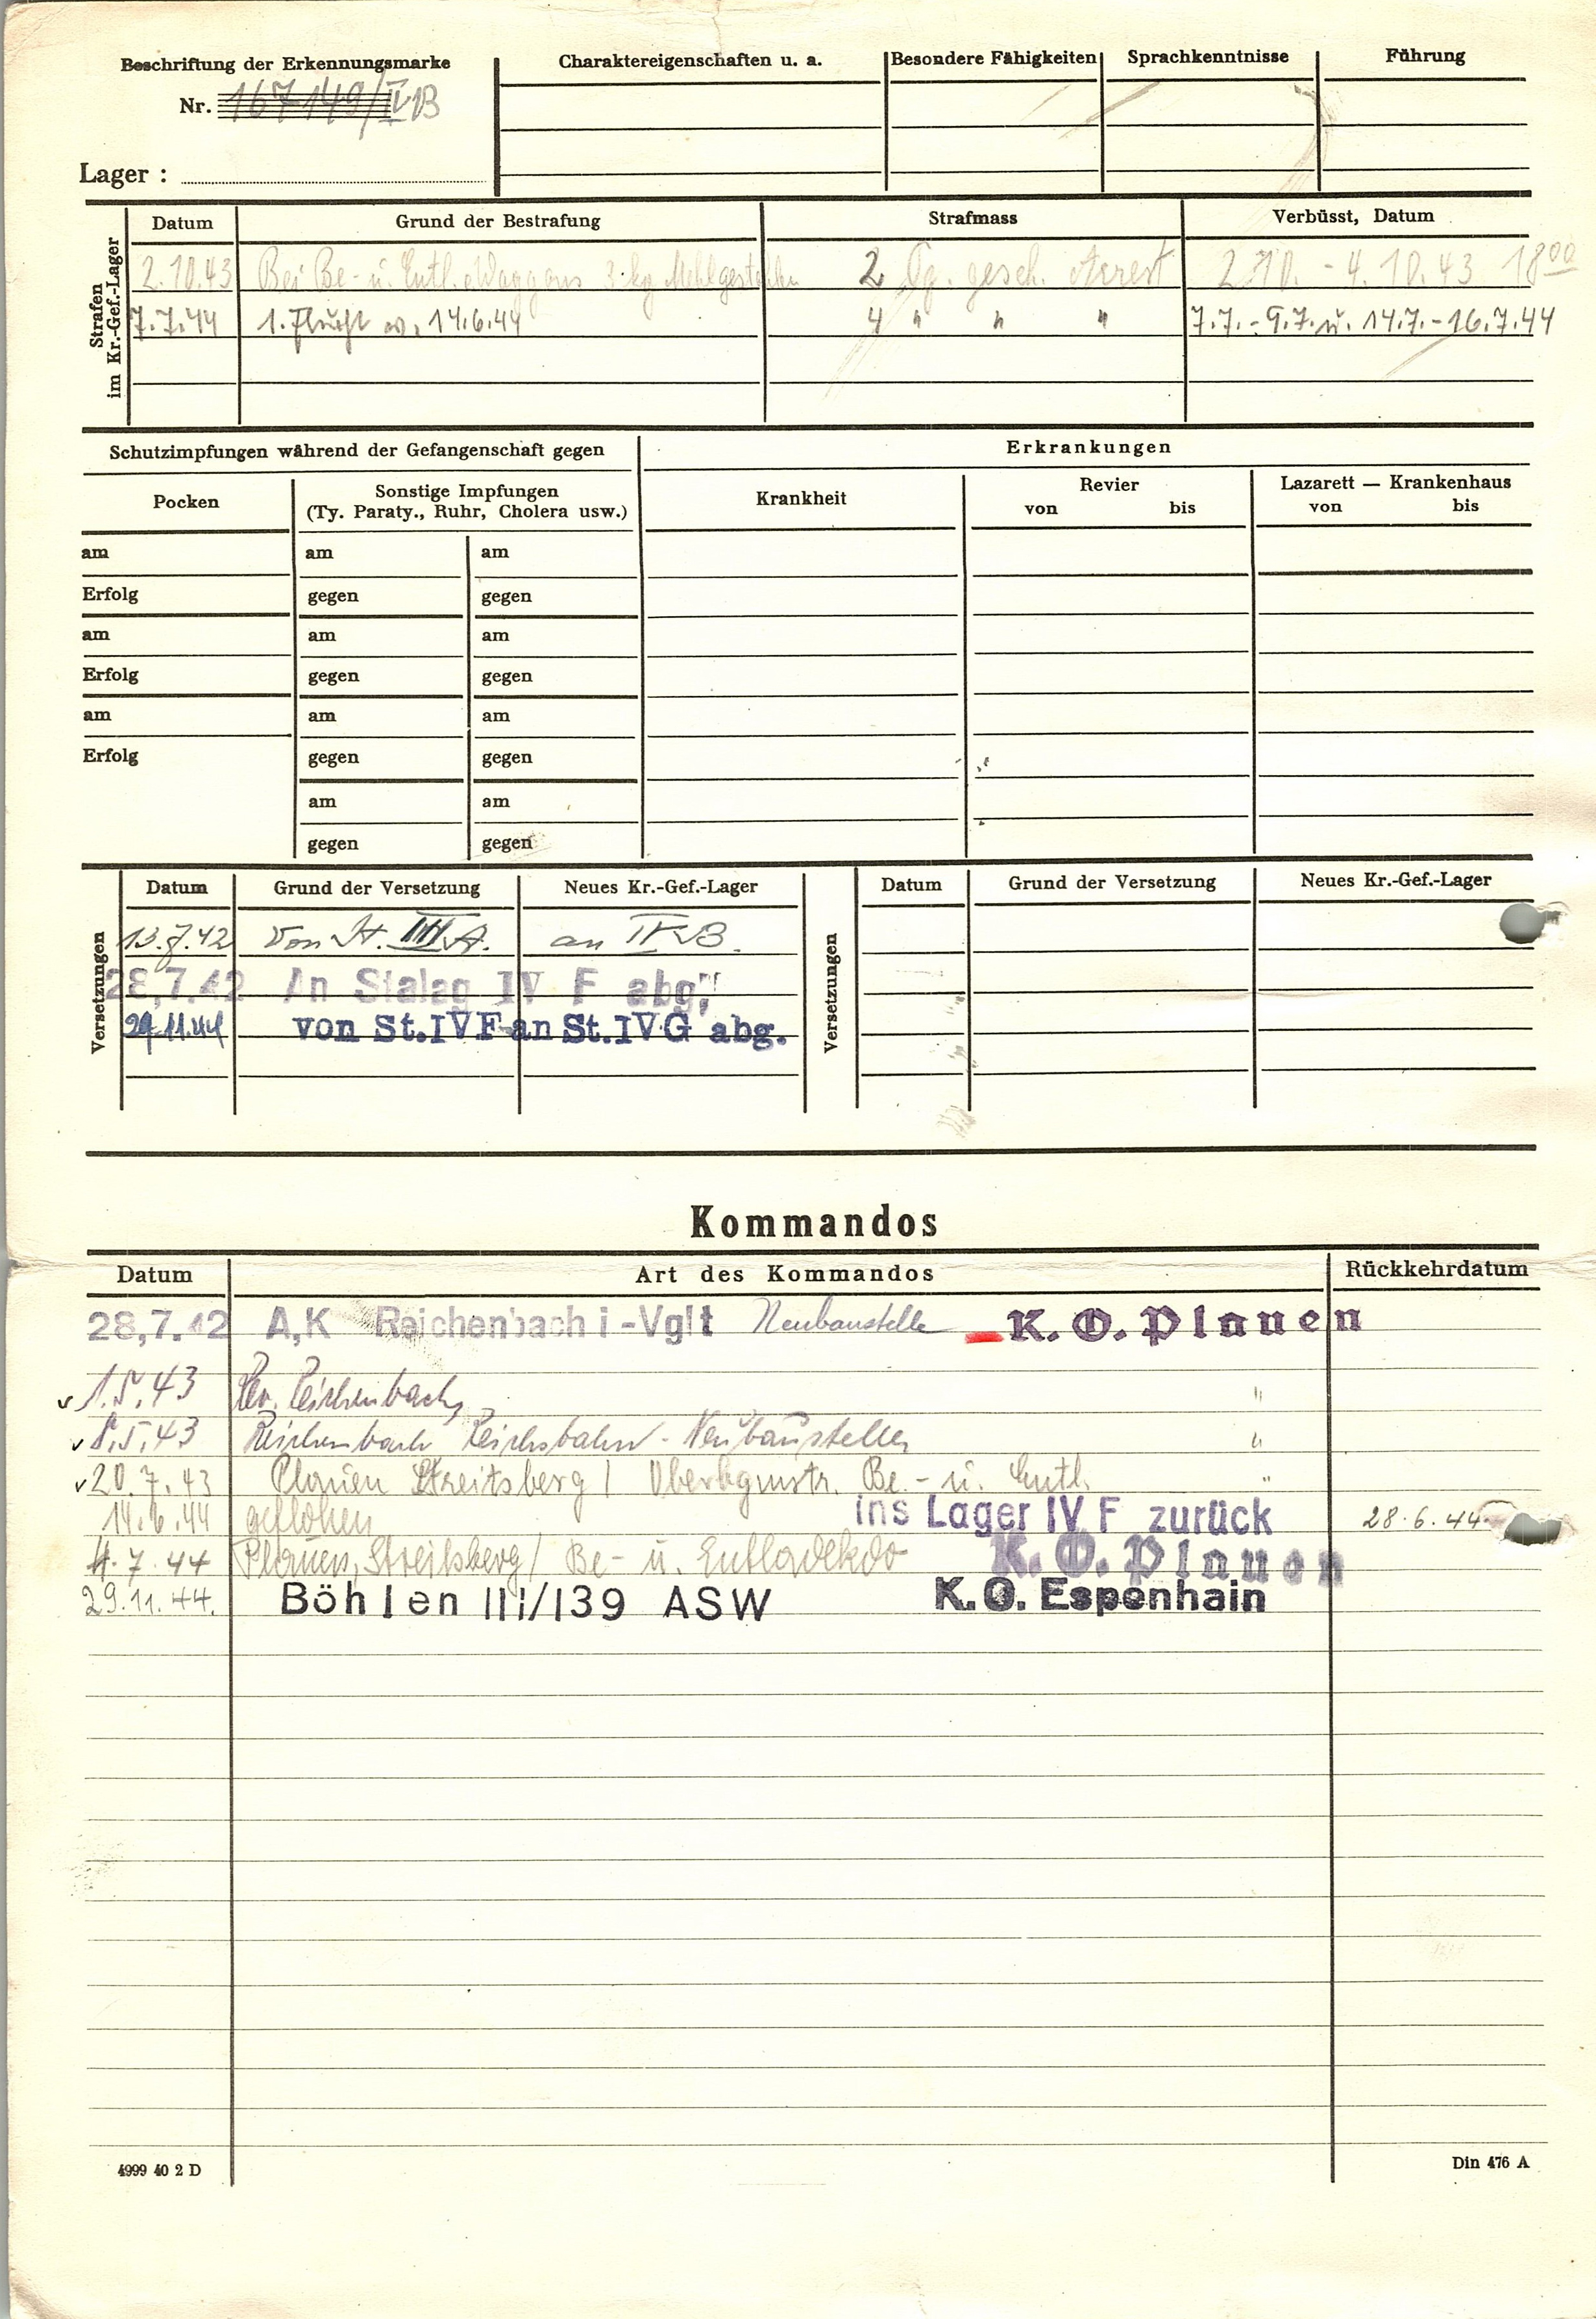 Beschriftung der Erkennungsmarke
Nr. 167149/IVB
Lager :
Charaktereigenschaften u. a.
Besondere Fähigkeiten
Sprachkenntnisse
Führung
Strafen
im Kr.-Gef.-Lager
Datum Grund der Bestrafung Strafmass Verbüsst, Datum
2.10.43 Bei Be- u. Entl. Waggons 3 kg Mehl 2 Tg. gesch. Arrest 2.10. - 4.10.43 18 00
7.7.44 1. Flucht 14.6.44 4 " " " 7.7. - 9.7. u. 14.7. - 16.7.44
Schutzimpfungen während der Gefangenschaft gegen Erkrankungen
Pocken
Sonstige Impfungen
(Ty. Paraty., Ruhr, Cholera usw.)
Krankheit
Revier
von bis
Lazarett — Krankenhaus
von bis
am am am
Erfolg gegen gegen
am am am
Erfolg gegen gegen
am am am
Erfolg gegen gegen
am am
gegen gegen
Versetzungen
Datum Grund der Versetzung Neues Kr.-Gef.-Lager
13.7.42 Von St. III A. an IV B.
28,7.42 An Stalag IV F abg.
29.11.44 von St. IV F an St. IV G abg.
Versetzungen
Datum Grund der Versetzung Neues Kr.-Gef.-Lager
Kommandos
Datum Art des Kommandos Rückkehrdatum
28,7.42 A,K Reichenbach i-Vglt Neubaustelle K. O. Plauen
1.5.43 Rev. Reichenbach "
8.5.43 Reichenbach Reichsbahn - Neubaustelle "
20.7.43 Plauen Streitsberg / Be.- u. Entl. "
14.6.44 geflohen ins Lager IV F zurück 28.6.44
4.7.44 Plauen, Streitsberg / Be- u. Entladekdo K. O. Plauen
29.11.44. Böhlen III/139 ASW K.O. Espenhain
4999 40 2 D
Din 476 A